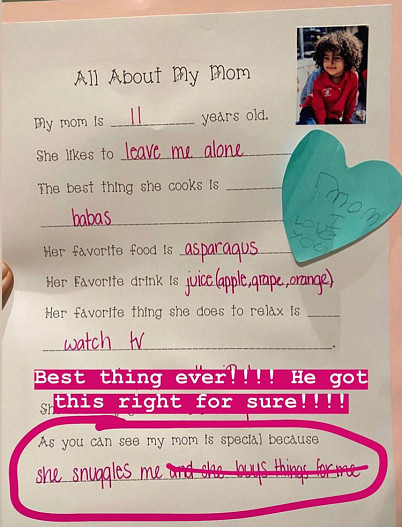 All About My Mom
My mom is 11 years old.
She likes to leave me alone
The best thing she cooks is
babas
mom
I
LOVE
YOU
Her favorite food is asparagus
Her favorite drink is juice (apple, grape, orange)
Her favorite thing she does to relax is
watch tv.
Best thing ever!!!! He got
this right for sure!!!!
Sh
As you can see my mom is special because
she snuggles me and she buys things for me